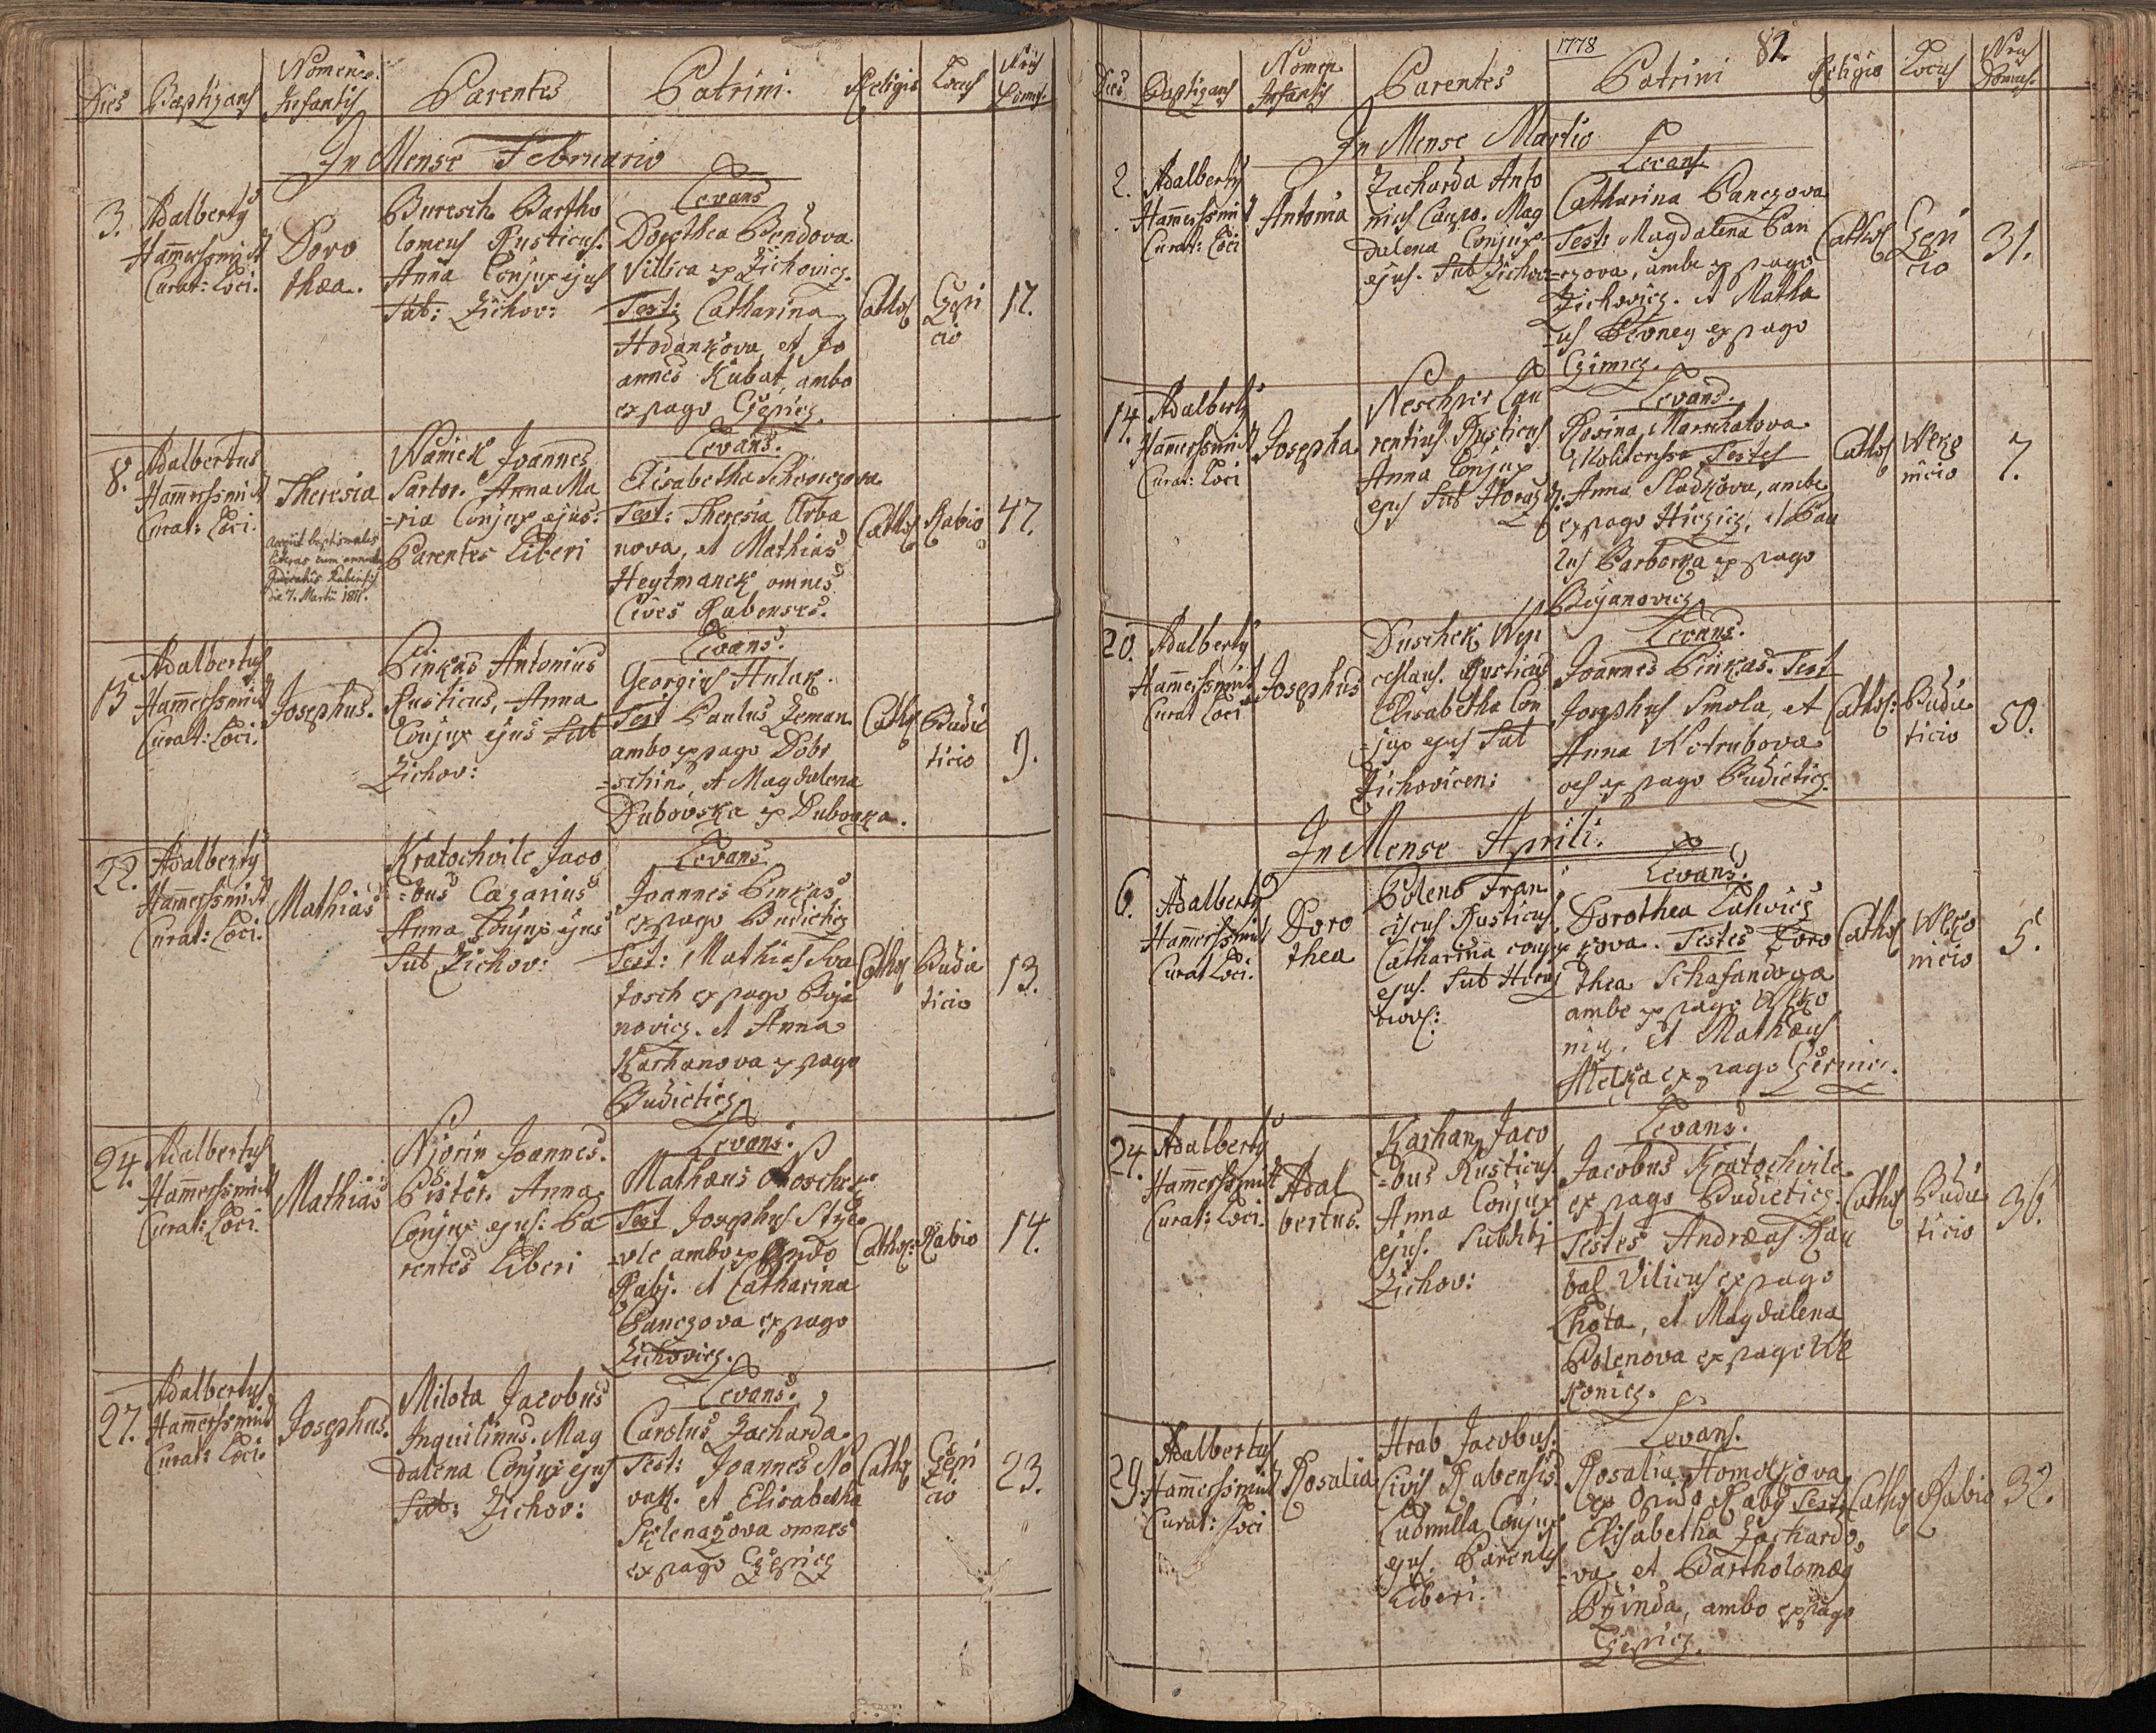 Dies Baptizans Nomen Infantis Parentes Patrini. Religio Locus Nrus Domus.
In Mense Februario
3. Adalbertus Hamerssmidt Curat: Loci.
Doro
thæa.
Buresch Bartho
lomeus Rusticus.
Anna Conjux ejus
Sub: Zichov:
Levans
Dorothea Bendova
Villica ex Zichovicz.
Test: Catharina
Hodankova, et Jo
annes Kubat, ambo
ex pago Czepicz.
Cathol
Czepi
cio
17.
8. Adalbertus
Hamerssmidt
Curat: Loci.
Theresia
die 7. Martii
Wanick Joannes
Sartor. Anna Ma
=ria Conjux ejus.
Parentes Liberi
Levans.
Elisabetha
Test: Theresia Urba
nova, et Mathias
Heytmanek omnes
Cives Rabenses.
Cathol
Rabio
47.
13 Adalbertus
Hamerssmidt
Curat: Loci.
Josephus.
Pinkas Antonius
Rusticus, Anna
Conjux ejus Sub
Zichov:
Levans.
Georgius Hulak.
Test Paulus Zeman
ambo ex pago Dobr
=schin, et Magdalena
Dubovska ex Dubovka.
Cathol
Budie
ticio
9.
22. Adalbertus
Hamerssmidt
Curat: Loci.
Mathias
Kratochvile Jaco
=bus Casarius
Anna Conjux ejus
Sub Zichov:
Levans
Joannes Pinkas
ex pago Budieticz
Test: Mathias Sva
tosch ex pago Boja
novicz. et Anna
Karhanova ex pago
Budieticz
Cathol
Budie
ticio
13.
24. Adalbertus
Hamerssmidt
Curat: Loci.
Mathias
Joannes.
Pistor. Anna
Conjux ejus: Pa
rentes Liberi
Levans.
Mathæus
Test Josephus
ambo ex Opido
Rabj. et Catharina
Panczova ex pago
Zichovicz.
Cathol:
Rabio
14.
27. Adalbertus
Hamerssmidt
Curat: Loci.
Josephus.
Milota Jacobus
Inquilinus. Mag
dalena Conjux ejus
Sub: Zichov:
Levans.
Carolus Zacharda.
Test: Joannes No
vak. et Elisabetha
Sklenazova omnes
ex pago Czepicz
Cathol
Czepi
cio
23.
1778 82.
Dies Baptizans Nomen Infantis Parentes Patrini Religio Locus Nrus Domus.
In Mense Martio
2. Adalbertus
Hamerssmidt
Curat: Loci
Antonia
Zacharda Anto
nius Caupo. Mag
dalena Conjux
ejus. Sub Zichov
Levans
Catharina Panczova
Test: Magdalena Pan
=czova, ambæ ex pago
Zichovicz. et Mathæ
=us Pevney ex pago
Czimicz.
Cathol
Czepi
cio
31.
14. Adalbertus
Hamerssmidt
Curat: Loci
Josepha
Neschper Lau
rentius Rusticus
Anna Conjux
ejus Sub Horazd.
Levans.
Rosina Marschalova
Testes
Anna Sladkova, ambæ
ex pago et Pau
lus Barborka ex pago
Bojanovicz
Cathol
Wlko
nicio
7.
20. Adalbertus
Hamerssmidt
Curat Loci
Josephus
Duschek Wen
ceslaus. Rusticus
Elisabetha Con
=jux ejus Sub
Zichovicen:
Levans.
Joannes Pinkas. Test
Josephus Smola, et
Anna Kotrubova
oes ex pago Budieticz
Cathol:
Budie
ticio
50.
In Mense Aprili.
6. Adalbertus
Hamerssmidt
Curat Loci.
Doro
thea
Poleno Fran
ciscus Rusticus,
Catharina conjux
ejus. Sub Horaz
Levans.
Dorothea Lukvicz
kova. Testes Doro
thea Schafandova
ambæ ex pago Wlko
nicz. et Mathæus
ex pago
Cathol
Wlko
nicio
5.
24. Adalbertus
Hamerssmidt
Curat: Loci.
Adal
bertus.
Karhan Jaco
=bus Rusticus.
Anna Conjux
ejus. Subditi
Zichov:
Levans.
Jacobus Kratochvile
ex pago Budieticz.
Testes Andræas Kau
bal Vilicus ex pago
Lhota, et Magdalena
Polenova ex pago Wl
konicz.
Cathol
Budie
ticio
36.
29. Adalbertus
Hamerssmidt
Curat: Loci
Rosalia
Hrab Jacobus.
Civis Rabensis
Ludmilla Conjux
ejus. Parentes
Liberi.
Levans.
Rosalia Homolkova
ex Opido Raby Test:
Elisabetha Zachardo
=va et Bartholomæus
Brinda, ambo ex pago
Czepicz.
Cathol
Rabio
32.